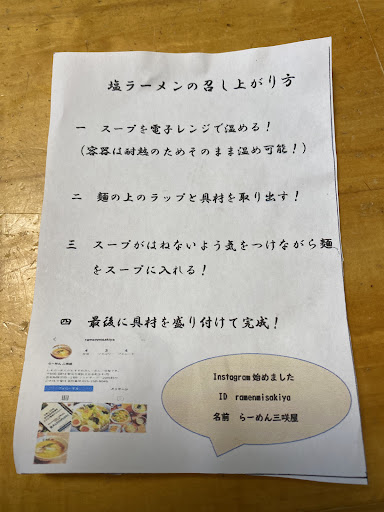 塩ラーメンの召し上がり方
一 スープを電子レンジで温める!
(容器は耐熱のためそのまま温め可能!)
二 麺の上のラップと具材を取り出す!
三 スープがはねないよう気をつけながら麺
をスープに入れる!
四 最後に具材を盛り付けて完成!
ramenmisakiya
らーめん三咲屋
Instagram始めました
ID ramenmisakiya
名前 らーめん三咲屋